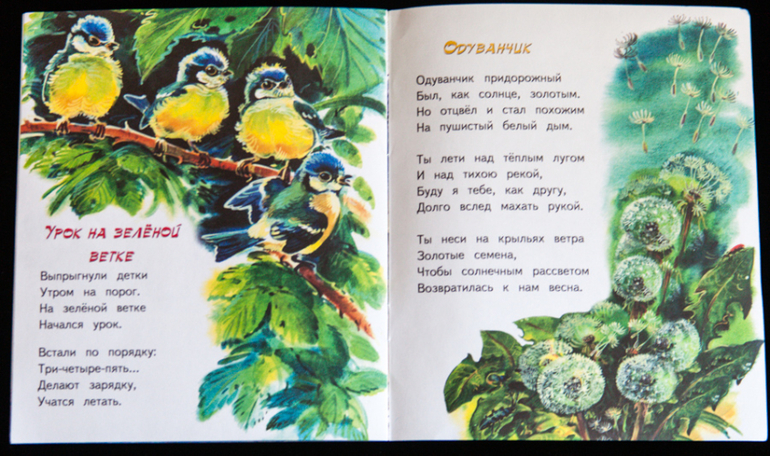 Урок на зелёной
ветке
Выпрыгнули детки
Утром на порог.
На зелёной ветке
Начался урок.
Встали по порядку:
Три-четыре-пять...
Делают зарядку,
Учатся летать.
Одуванчик
Одуванчик придорожный
Был, как солнце, золотым.
Но отцвёл и стал похожим
На пушистый белый дым.
Ты лети над тёплым лугом
И над тихою рекой,
Буду я тебе, как другу,
Долго вслед махать рукой.
Ты неси на крыльях ветра
Золотые семена,
Чтобы солнечным рассветом
Возвратилась к нам весна.